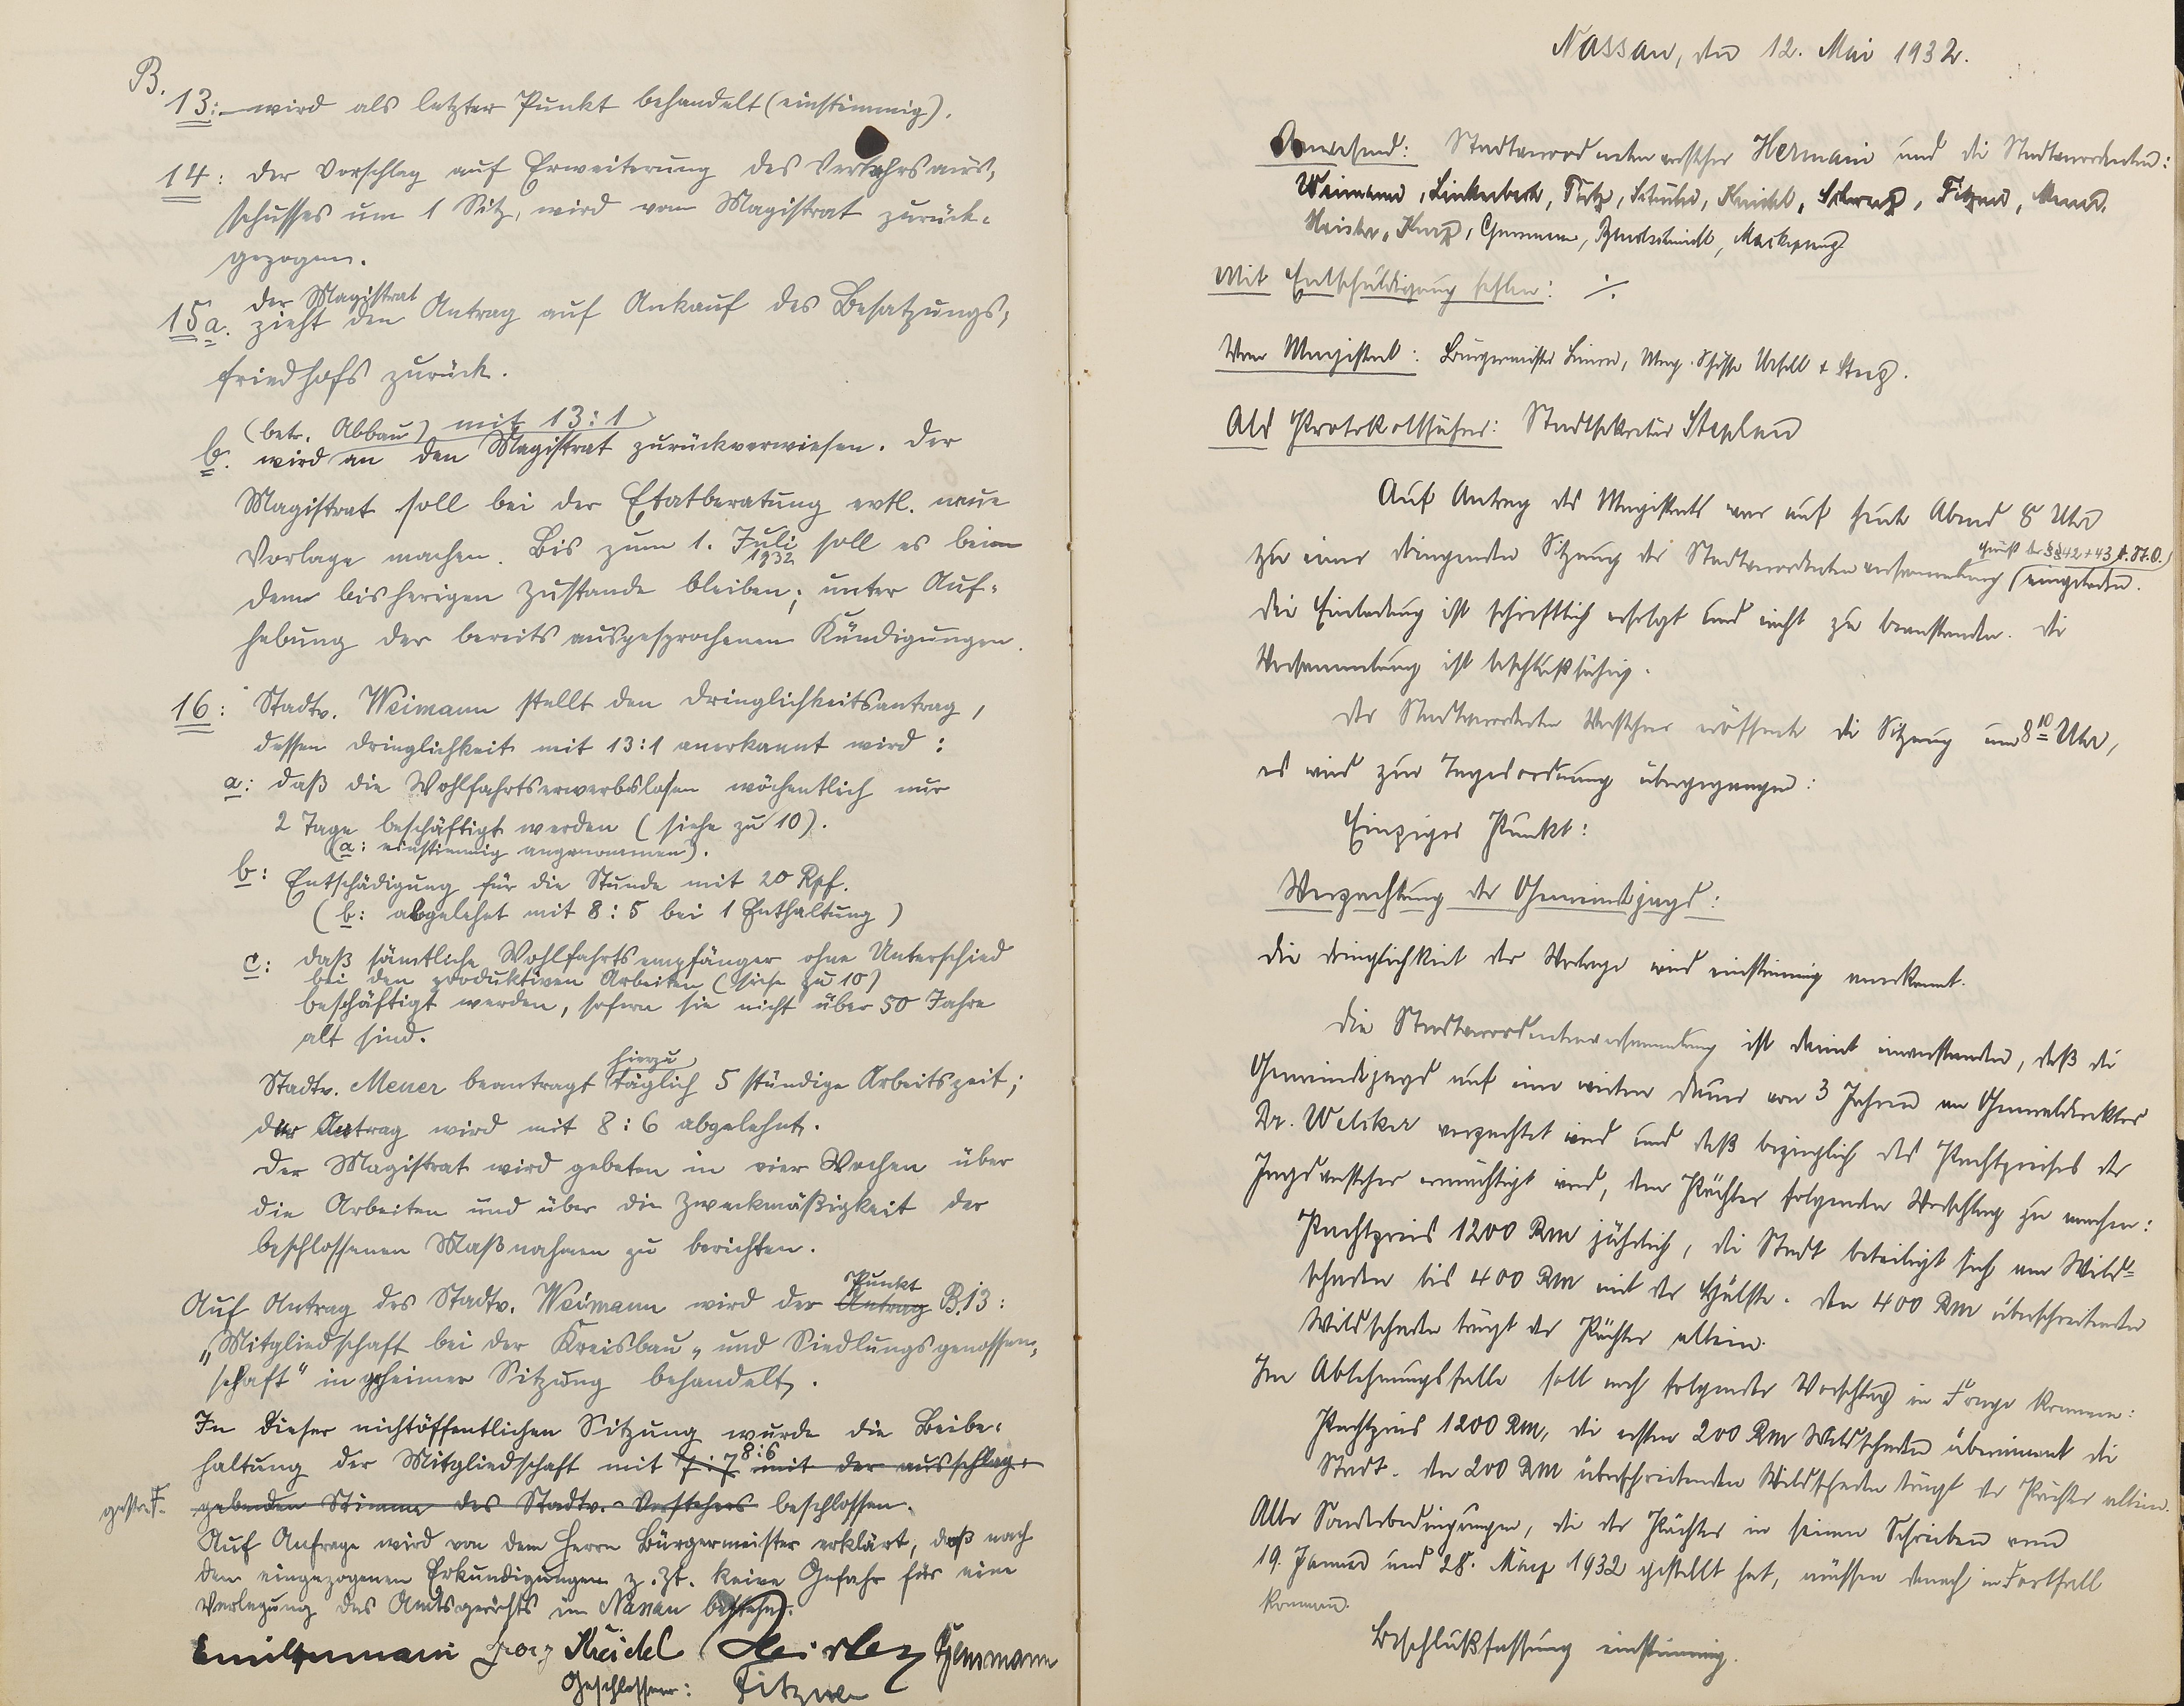 B.
13: wird als letzter Punkt behandelt (einstimmig).
14: Der Vorschlag auf Erweiterung des Verkehrsaus-
schusses um 1 Sitz, wird vom Magistrat zurück-
gezogen.
der Magistrat
15a. zieht den Antrag auf Ankauf des Besatzungs-
friedhofs zurück.
(betr. Abbau) mit 13:1
b. wird an den Magistrat zurückverwiesen. Der
Magistrat soll bei der Etatberatung evtl. neue
Vorlage machen. Bis zum 1. Juli soll es beim
1932
dem bisherigen Zustande bleiben; unter Auf-
hebung der bereits ausgesprochenen Kündigungen.
16: Stadtv. Weimann stellt den Dringlichkeitsantrag,
dessen Dringlichkeit mit 13:1 anerkannt wird:
a: daß die Wohlfahrtserwerbslosen wöchentlich nur
2 Tage beschäftigt werden (siehe zu 10).
(a: einstimmig angenommen).
b: Entschädigung für die Stunde mit 20 Rpf.
(b: abgelehnt mit 8:5 bei 1 Enthaltung)
c: daß sämtliche Wohlfahrtsempfänger ohne Unterschied
bei den produktiven Arbeiten (siehe zu 10)
beschäftigt werden, sofern sie nicht über 50 Jahre
alt sind.
hierzu
Stadtv. Meuer beantragt täglich 5 stündige Arbeitszeit;
der Antrag wird mit 8:6 abgelehnt.
Der Magistrat wird gebeten in vier Wochen über
die Arbeiten und über die Zweckmäßigkeit der
beschlossenen Maßnahmen zu berichten.
Punkt
Auf Antrag des Stadtv. Weimann wird der Antrag B.13:
„Mitgliedschaft bei der Kreisbau- und Siedlungsgenossen-
schaft" in geheimer Sitzung behandelt.
In dieser nichtöffentlichen Sitzung wurde die Beibe-
haltung der Mitgliedschaft mit 7:7 8:6 mit der ausschlag-
gebenden Stimme des Stadtv.-Vorstehers beschlossen.
Auf Anfrage wird von dem Herrn Bürgermeister erklärt, daß nach
den eingezogenen Erkundigungen z. Zt. keine Gefahr für eine
Verlegung des Amtsgerichts in Nassau bestehe.
Georg Kreidel Heisler
Geschlossen: Fitzner
Nassau, den 12. Mai 1932.
Anwesend: Stadtverordnetenvorsteher Hermani und die Stadtverordneten:
Weimann, Linkerbach, Kreidel, Schwarz, Fitzner, Meuer,
Heisler, Kurz, Mackeprang
Mit Entschuldigung fehlen: ./.
Vom Magistrat: Bürgermeister Mag. Schöffe Unfell + Sterz.
Als Protokollführer: Stadtsekretär Stephan
Auf Antrag des Magistrats war auf heute Abend 8 Uhr
gemäß der §§ 42 + 43 d. St.O.
zu einer dringenden Sitzung der Stadtverordnetenversammlung eingeladen.
Die Einladung ist schriftlich erfolgt und nicht zu beanstanden. Die
Versammlung ist beschlußfähig.
Der Stadtverordneten Vorsteher eröffnete die Sitzung um 8 10 Uhr,
es wird zur Tagesordnung übergegangen:
Einziger Punkt:
Verpachtung der Gemeindejagd:
Die Dringlichkeit der Vorlage wird einstimmig anerkannt.
Die Stadtverordnetenversammlung ist damit einverstanden, daß die
Gemeindejagd auf eine weitere Dauer von 3 Jahren an Generaldirektor
Dr. Welcker verpachtet wird und daß bezüglich des Pachtpreises der
Jagdvorsteher ermächtigt wird, dem Pächter folgenden Vorschlag zu machen:
Pachtpreis 1200 RM jährlich, die Stadt beteiligt sich am Wild-
schaden bis 400 RM mit der Hälfte. Den 400 RM überschreitenden
Wildschaden trägt der Pächter allein.
Im Ablehnungsfalle soll noch folgender Vorschlag in Frage kommen:
Pachtpreis 1200 RM, die ersten 200 RM Wildschaden übernimmt die
Stadt. Den 200 RM überschreitenden Wildschaden trägt der Pächter allein.
Alle Sonderbedingungen, die der Pächter in seinen Schreiben vom
19. Januar und 28. März 1932 gestellt hat, müssen danach in Fortfall
kommen.
Beschlußfassung einstimmig.